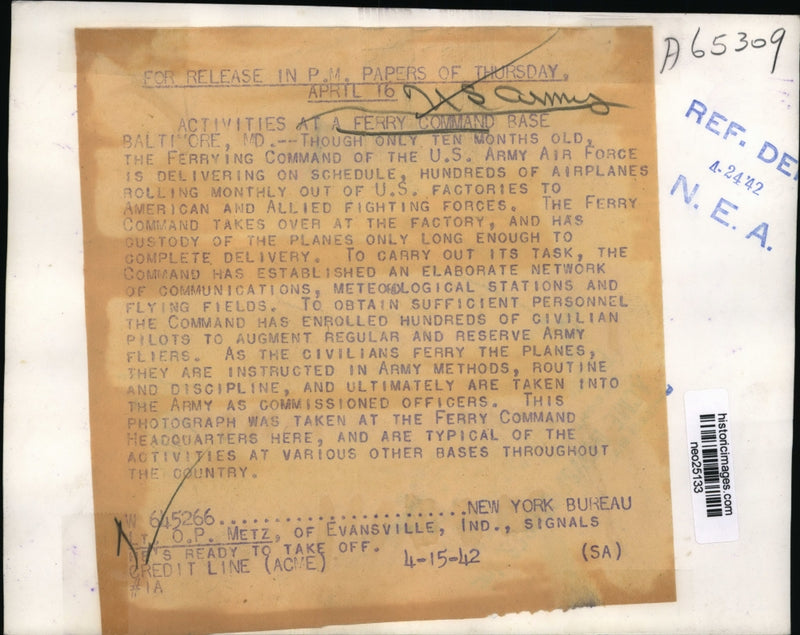 A65309
FOR RELEASE IN P.M. PAPERS OF THURSDAY,
APRIL 16
US Army
ACTIVITIES AT A FERRY COMMAND BASE
BALTIMORE, MD.--THOUGH ONLY TEN MONTHS OLD,
THE FERRYING COMMAND OF THE U.S. ARMY AIR FORCE
IS DELIVERING ON SCHEDULE, HUNDREDS OF AIRPLANES
ROLLING MONTHLY OUT OF U.S. FACTORIES TO
AMERICAN AND ALLIED FIGHTING FORCES. THE FERRY
COMMAND TAKES OVER AT THE FACTORY, AND HAS
CUSTODY OF THE PLANES ONLY LONG ENOUGH TO
COMPLETE DELIVERY. TO CARRY OUT ITS TASK, THE
COMMAND HAS ESTABLISHED AN ELABORATE NETWORK
OF COMMUNICATIONS, METEOROLOGICAL STATIONS AND
FLYING FIELDS. TO OBTAIN SUFFICIENT PERSONNEL
THE COMMAND HAS ENROLLED HUNDREDS OF CIVILIAN
PILOTS TO AUGMENT REGULAR AND RESERVE ARMY
FLIERS. AS THE CIVILIANS FERRY THE PLANES,
THEY ARE INSTRUCTED IN ARMY METHODS, ROUTINE
AND DISCIPLINE, AND ULTIMATELY ARE TAKEN INTO
THE ARMY AS COMMISSIONED OFFICERS. THIS
PHOTOGRAPH WAS TAKEN AT THE FERRY COMMAND
HEADQUARTERS HERE, AND ARE TYPICAL OF THE
ACTIVITIES AT VARIOUS OTHER BASES THROUGHOUT
THE COUNTRY.
W 645266.........................NEW YORK BUREAU
LT. O.P. METZ, OF EVANSVILLE, IND., SIGNALS
READY TO TAKE OFF.
CREDIT LINE (ACME) 4-15-42 (SA)
#1A
REF. DE
4-24'42
N. E. A.
historicimages.com
neo25133